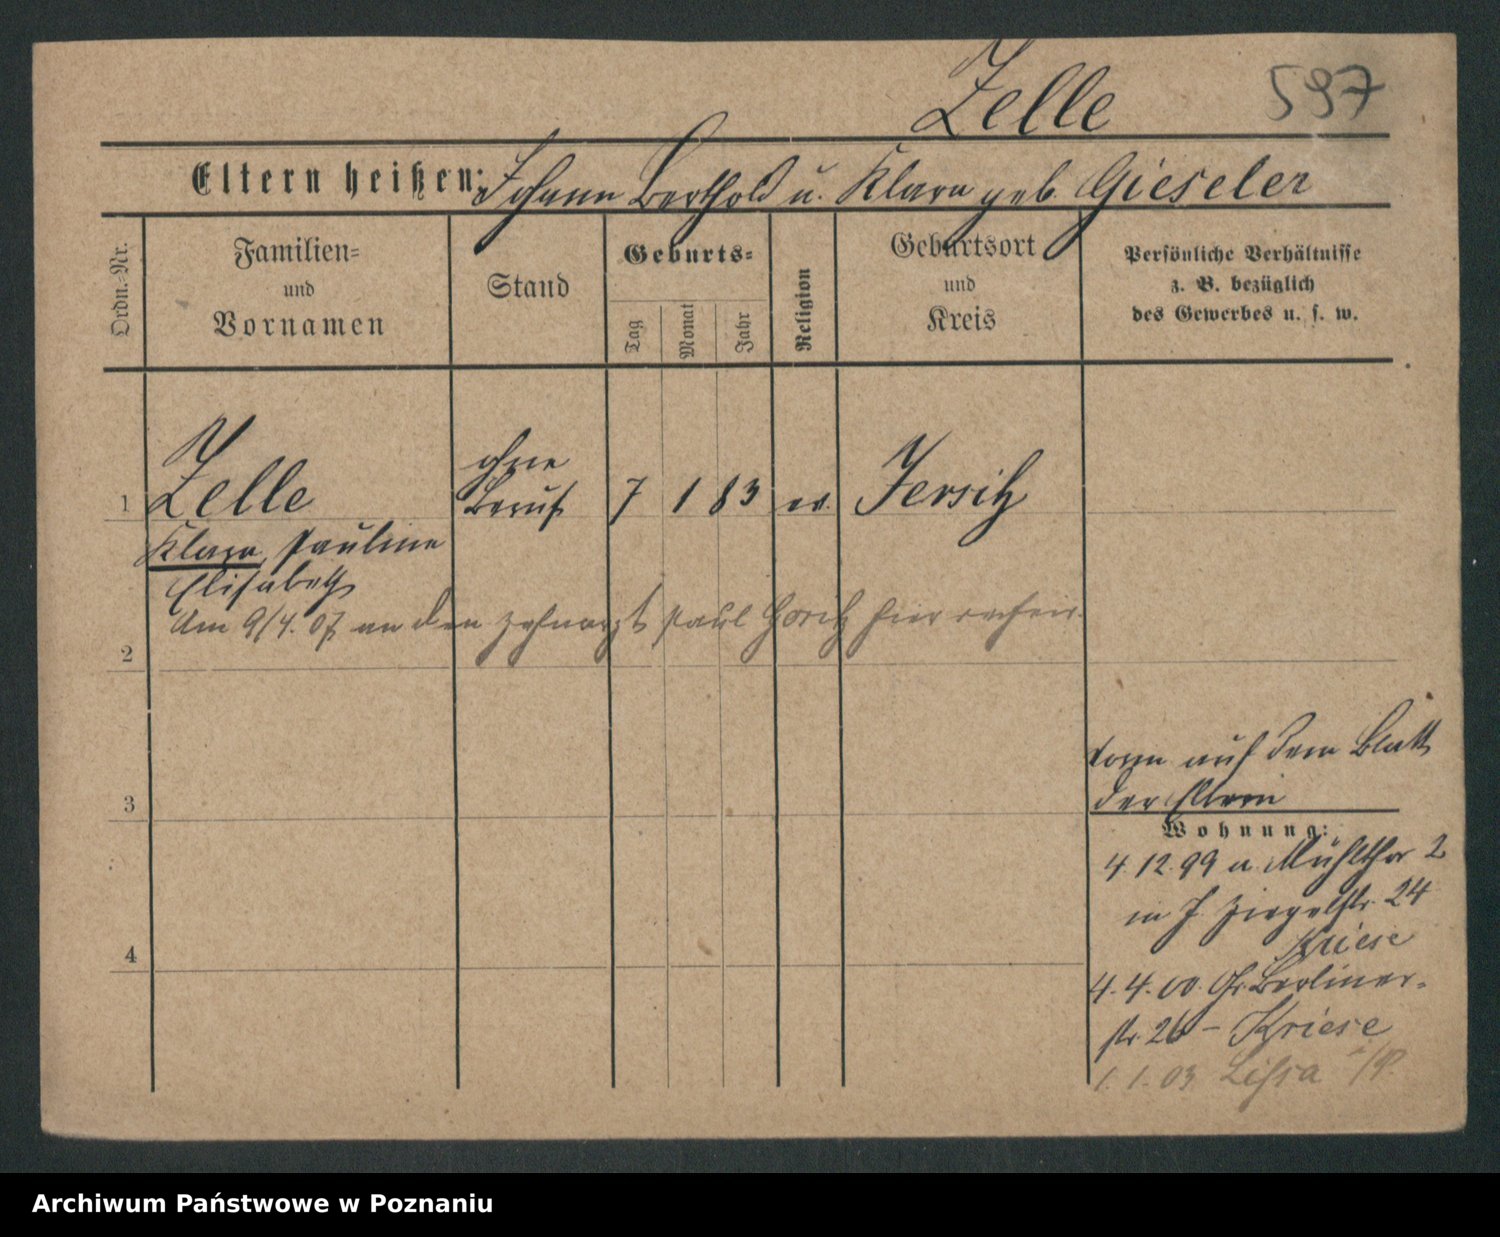 Zelle 597
Eltern heißen: Johann Berthold u. Klara geb. Gieseler
Ordn.-Nr.
Familien-
und
Vornamen
Stand
Geburts-
Tag
Monat
Jahr
Religion
Geburtsort
und
Kreis
Persönliche Verhältnisse
z. B. bezüglich
des Gewerbes u. s. w.
ohne
1 Zelle Beruf 7 1 83 ev. Jersitz
Klara, Pauline
Elisabeth
Am 9/4. 07 an den Zahnarzt Paul hier verheir.
2
auf dem Blatt
3 der Eltern
Wohnung:
4. 12. 99 a. Mühlthor 2
in J. Ziegelstr. 24
Kriese
4
4. 4. 00. Gr. Berliner-
str. 26 – Kriese
1. 1. 03 Lissa i/P.
Archiwum Państwowe w Poznaniu